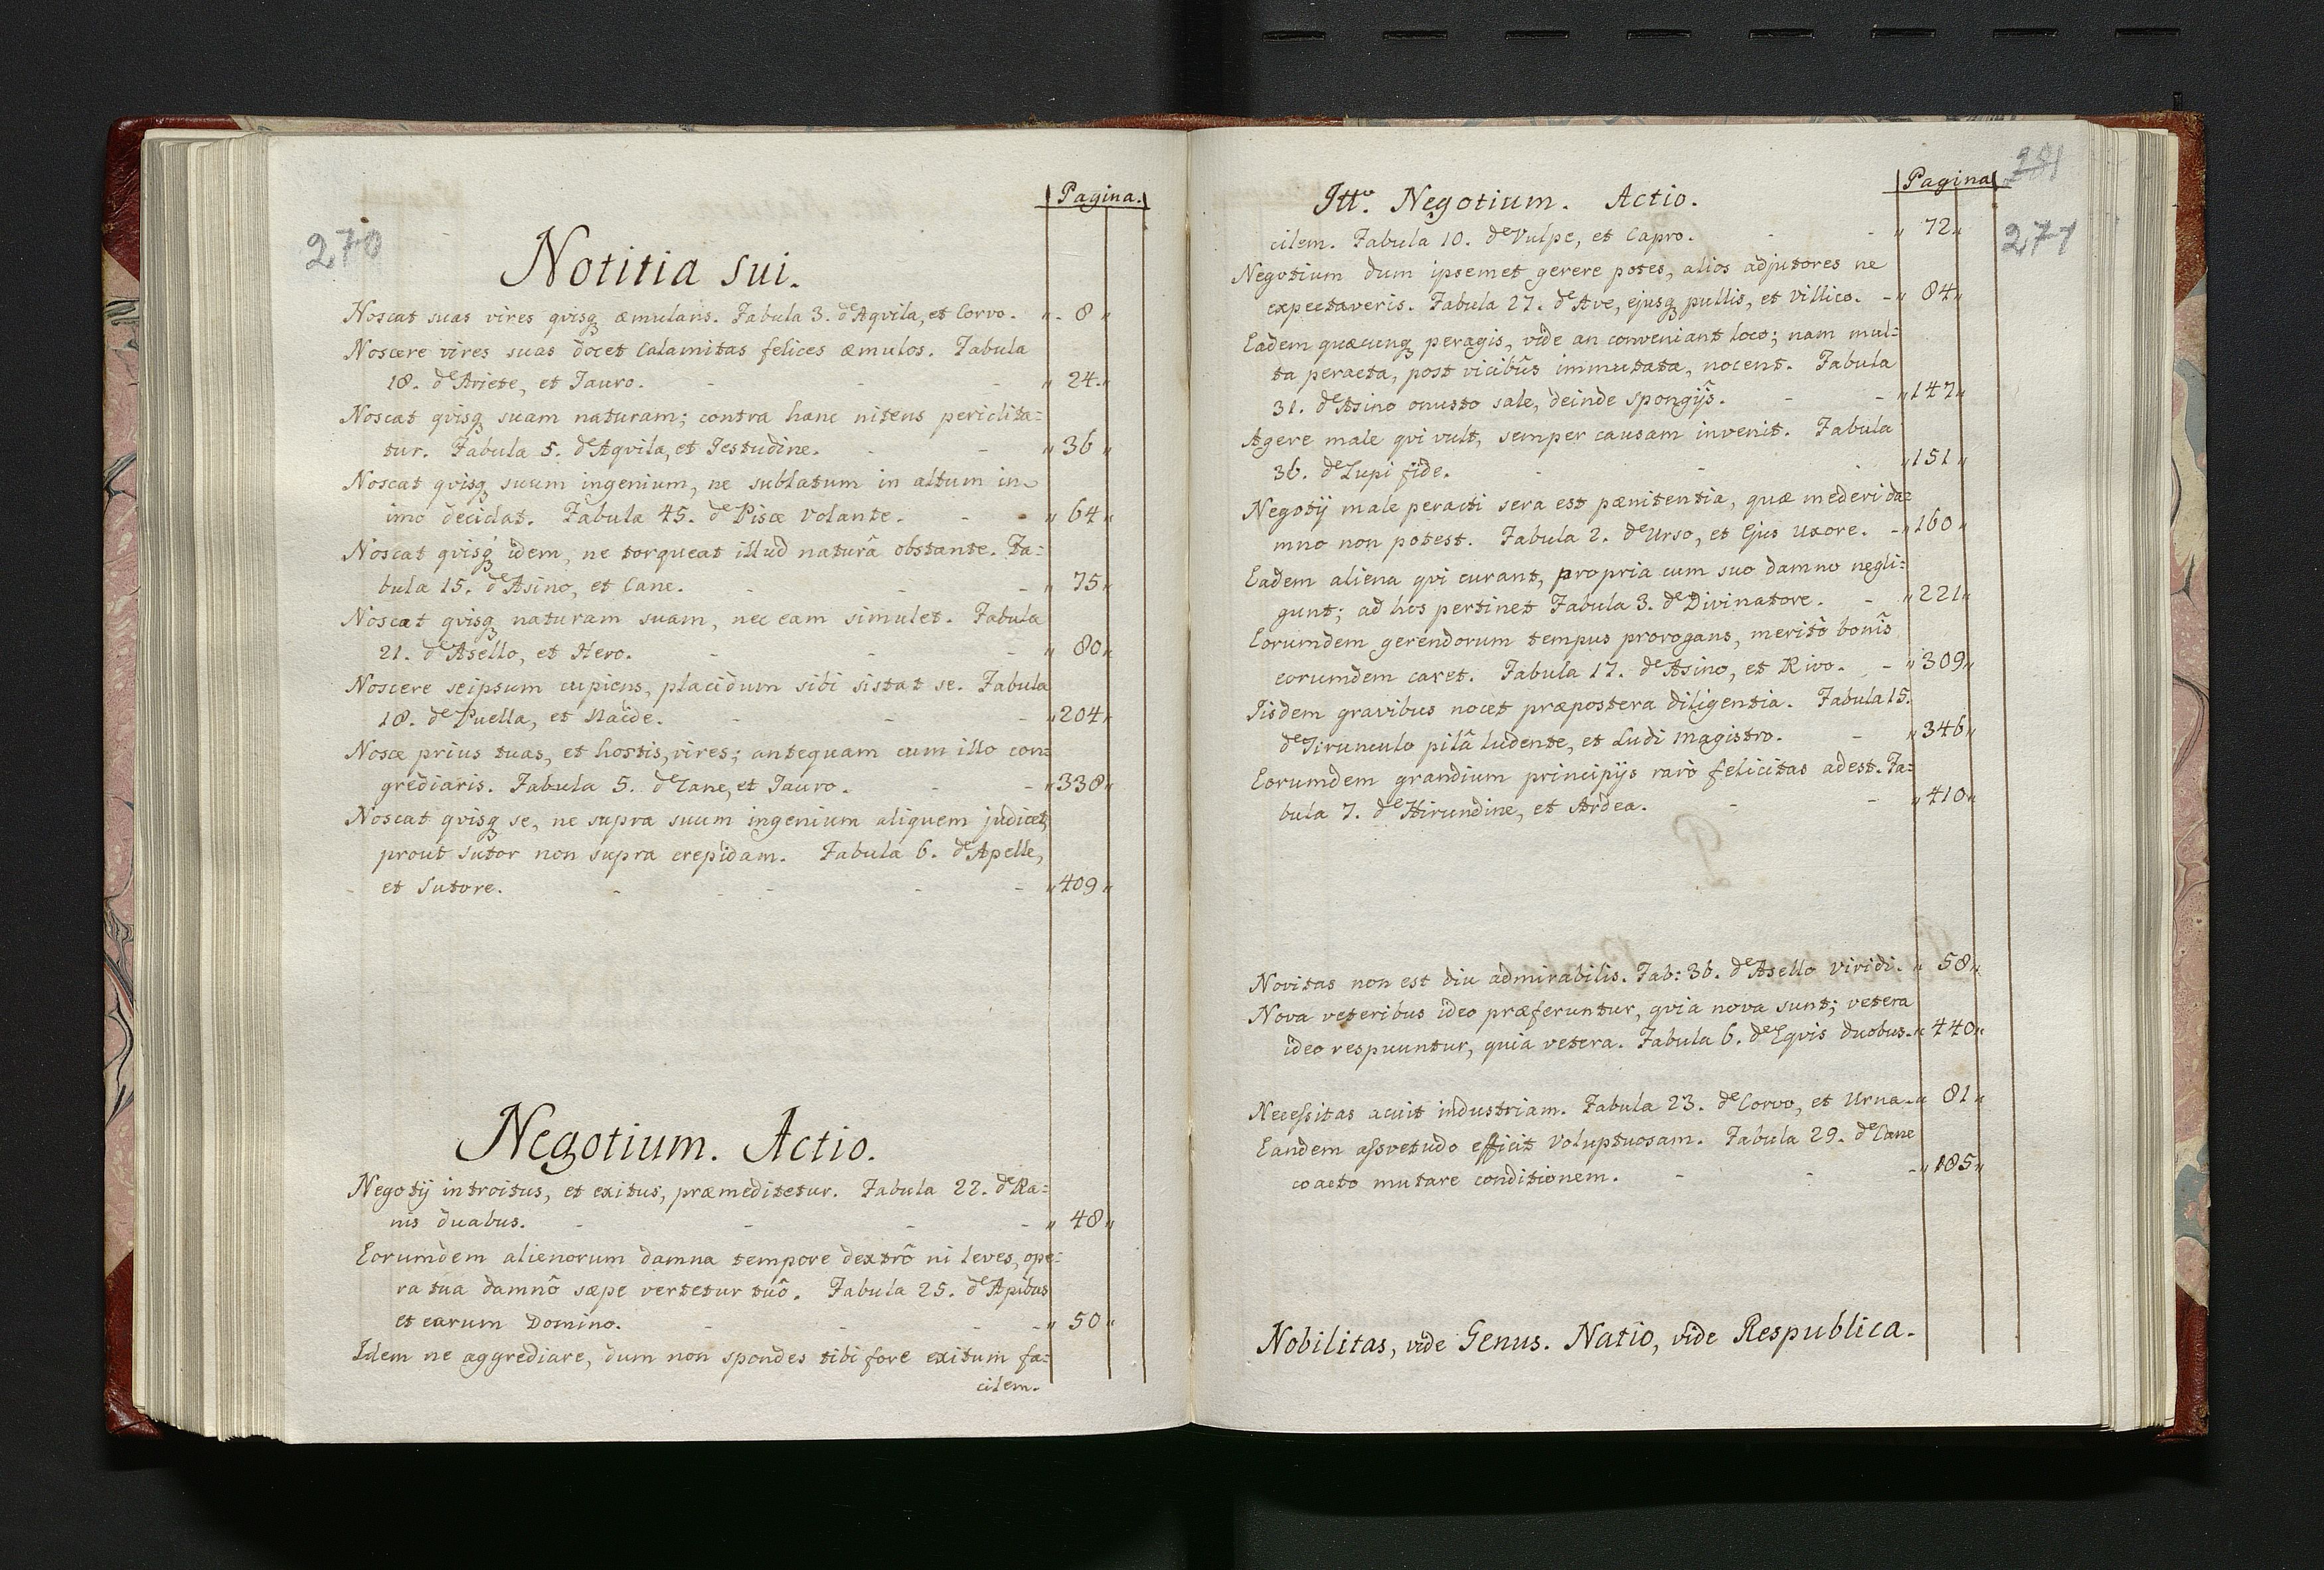 Pagina.
270
Notitia sui.
Noscat suas vires qvisqꝫ æmulans. Fabula 3. de Aqvila, et Corvo. „ 8 „
Noscere vires suas docet Calamitas felices æmulos. Fabula
18. de Ariete, et Tauro. - - - „ 24 „
Noscat qvisqꝫ suam naturam; contra hanc nitens periclita=
tur. Fabula 5. de Aqvila, et Testudine. - - „ 36 „
Noscat qvisqꝫ suum ingenium, ne sublatum in altum in
imo decidat. Fabula 45. de Pisce Volante. - - „ 64 „
Noscat qvisqꝫ idem, ne torqueat illud naturâ obstante. Fa=
bula 15. de Asino, et Cane. - - - „ 75 „
Noscat qvisqꝫ naturam suam, nec eam simulet. Fabula
21. de Asello, et Hero. - - - „ 80 „
Noscere seipsum cupiens, placidum sibi sistat se. Fabula
18. de Puella, et Naide. - - - „ 204 „
Nosce prius tuas, et hostis, vires; anteqvam cum illo con=
grediaris. Fabula 5. de Cane, et Tauro. - - „ 338 „
Noscat qvisqꝫ se, ne supra suum ingenium aliquem judicet,
prout sutor non supra crepidam. Fabula 6. de Apelle,
et Sutore. - - - - - „ 409 „
Negotium. Actio.
Negotij introitus, et exitus, præmeditetur. Fabula 22. de Ra=
nis duabus. - - - - „ 48 „
Eorumdem alienorum damna tempore dextrô ni leves, ope=
ra tua damnô sæpe vertetur tuô. Fabula 25. de Apibus
et earum Domino. - - - - „ 50 „
Idem ne aggrediare, dum non spondes tibi fore exitum fa=
cilem.
Pagina
281
271
Ittº. Negotium. Actio.
cilem. Fabula 10. de Vulpe, et Capro. - - „ 72 „
Negotium dum ipsemet gerere potes, alios adjutores ne
expectaveris. Fabula 27. de Ave, ejusqꝫ pullis, et Villico. - „ 84 „
Eadem quæcunqꝫ peragis, vide an conveniant loco; nam mul=
ta peracta, post vicibûs immutata, nocent. Fabula
31. de Asino onusto sale, deinde spongijs. - - „ 147 „
Agere male qvi vult, semper causam invenit. Fabula
36. de Lupi fide. - - - „ 151 „
Negotij male peracti sera est pænitentia, quæ mederi da=
mno non potest. Fabula 2. de Urso, et Ejus Uxore. - „ 160 „
Eadem aliena qvi curant, propria cum suo damno negli=
gunt; ad hos pertinet Fabula 3. de Divinatore. - „ 221 „
Eorumdem gerendorum tempus prorogans, meritò bonîs
eorumdem caret. Fabula 17. de Asino, et Rivo. - „ 309 „
Iisdem gravibus nocet præpostera diligentia. Fabula 15.
de Tirunculo pilâ ludente, et Ludi magistro. - „ 346 „
Eorumdem grandium principijs rarò felicitas adest. Fa=
bula 7. de Hirundine, et Ardea. - - „ 410 „
Novitas non est diu admirabilis. Fab: 36. de Asello viridi. „ 58 „
Nova veteribus ideo præferuntur, qvia nova sunt; vetera
ideo respuuntur, quia vetera. Fabula 6. de Eqvis duobus. „ 440 „
Necessitas acuit industriam. Fabula 23. de Corvo, et Urna. „ 81 „
Eandem assvetudo efficit Voluptuosam. Fabula 29. de Cane
coacto mutare conditionem. - - - „ 185 „
Nobilitas, vide Genus. Natio, vide Respublica.